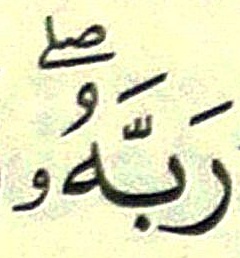 رَبَّهُۥۖ